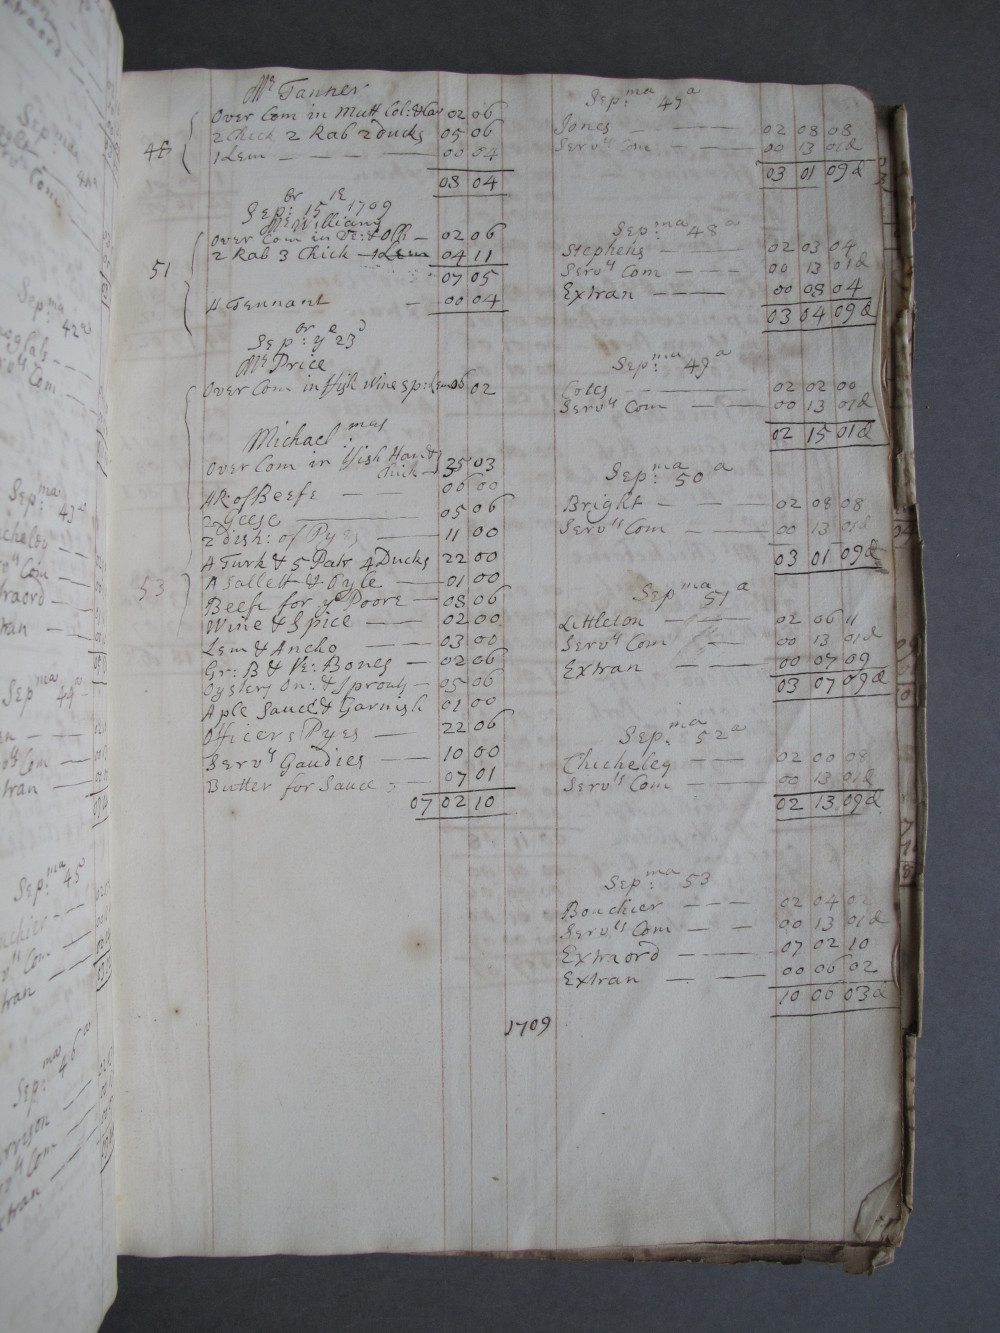 Mr Tanner
Over Com in Mutt Col: & Ca 02 06
2 Chick 2 Rab 2 Ducks 05 06
48
1 Lem — — — 00 04
08 04
Sepbr: 15 1709
Mr Williams
Over Com in Ve: & Off: — 02 06
2 Rab 3 Chick — 1 Lem 04 11
51
07 05
A Tennant — 00 04
Sepbr: ye 23d
Mr Price
Over Com in Fish Wine Sp: Lem 06 02
Michaelmas
Over Com in Fish Ham &
Chick — 35 03
A R: of Beefe — — 06 00
2 Geese — 05 06
2 dish: of Pyes — 11 00
A Turk & 5 Patr 4 Ducks 22 00
53
A Sallett & Pyle — 01 00
Beefe for ye Poore — 08 06
Wine & Spice — 02 00
Lem & Ancho — 03 00
Gr: B & Ve: Bones — 02 06
Oysters On: & Sprouts — 05 06
Aple Sauce & Garnish 01 00
Officers Pyes — 22 06
Servts Gaudies — 10 00
Butter for Sauce 07 01
07 02 10
Sepma: 47a
Jones — — — 02 08 08
Servts Com — — 00 13 01d
03 01 09d
Sepma: 48a
Stephens — — 02 03 04
Servts Com — — — 00 13 01d
Extran — — — 00 08 04
03 04 09d
Sepma: 49a
Coles — — 02 02 00
Servts Com — — 00 13 01d
02 15 01d
Sepma: 50a
Bright — — — 02 08 08
Servts Com — — 00 13 01d
03 01 09d
Sepma: 51a
Littleton — — — 02 06 11
Servts Com — — 00 13 01d
Extran — — 00 07 09
03 07 09d
Sepma: 52a
Chicheley — — 02 00 08
Servts Com — — 00 13 01d
02 13 09d
Sepma: 53
Bouchier — — — 02 04 02
Servts Com — — 00 13 01d
Extraord — — 07 02 10
Extran — — 00 06 02
10 06 03d
1709